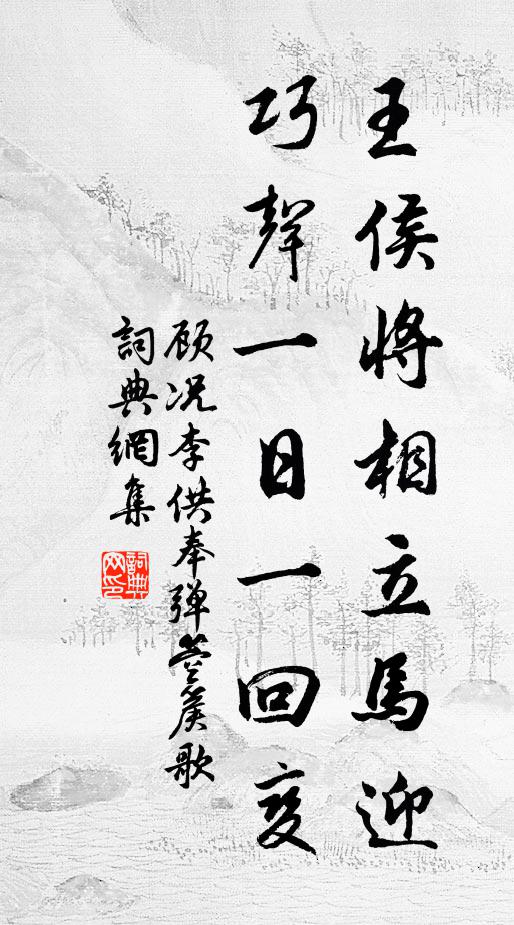 王侯将相立馬迎
巧聲一日一回变
顾况李供奉弹箜篌歌
詞典網集
詞典网印